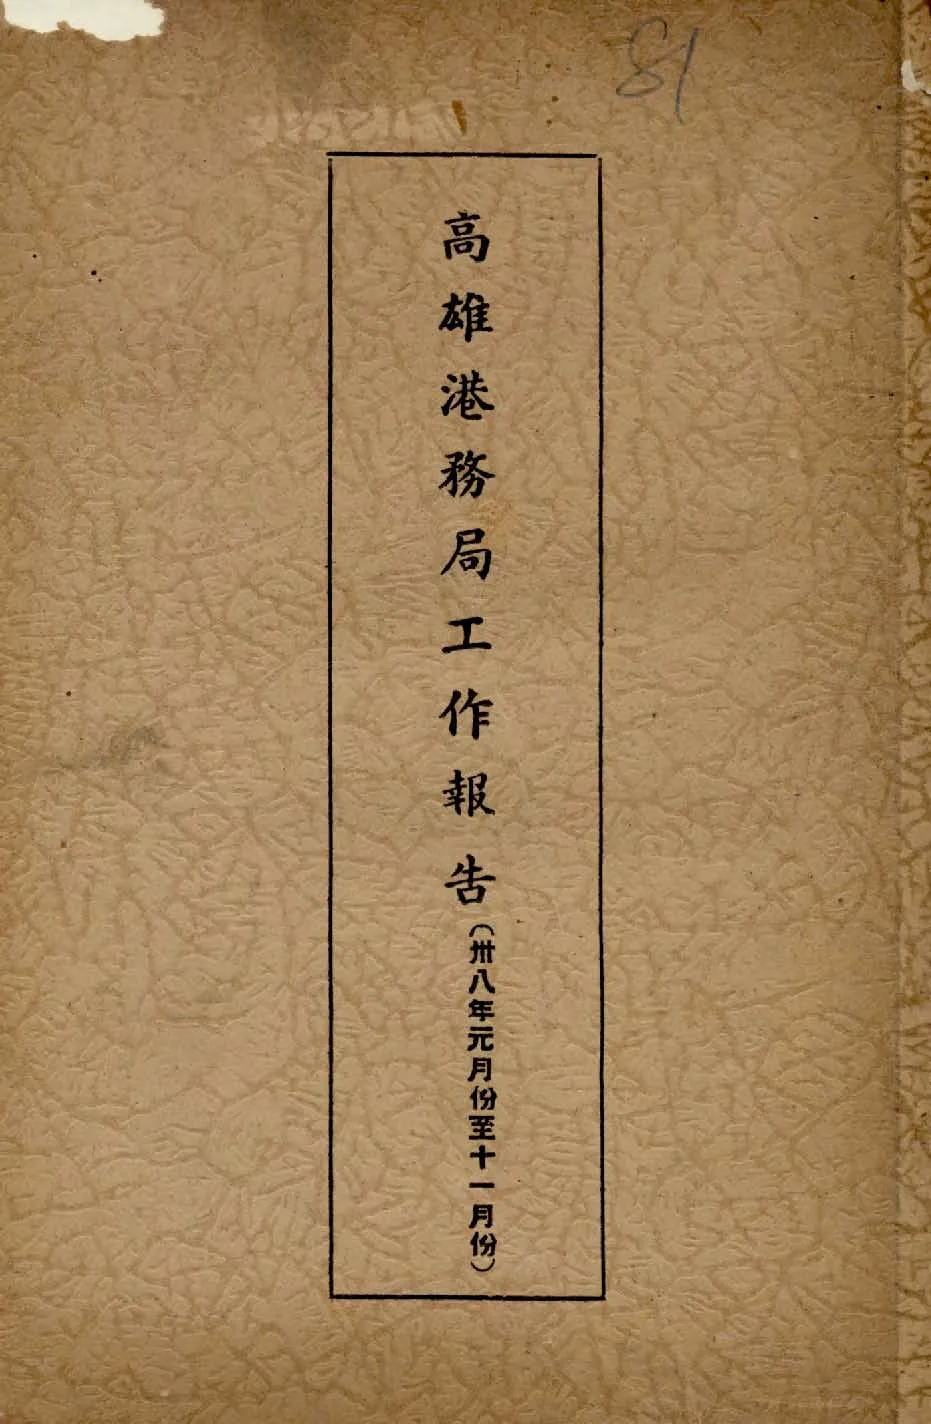 81
高雄港務局工作報告(卅八年元月份至十一月份)